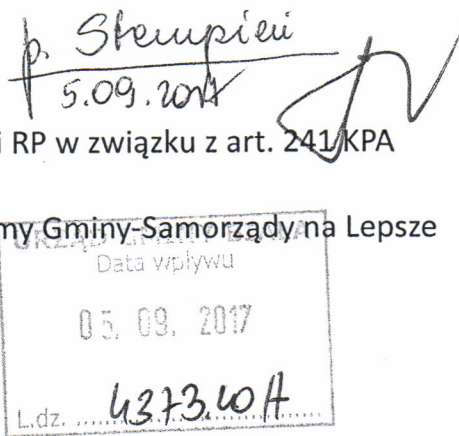 p. Stempień
5.09.2017
i RP w związku z art. 241 KPA
my Gminy-Samorządy na Lepsze
URZĄD GMINY
Data wpływu
05. 09. 2017
L.dz. 4373.2017